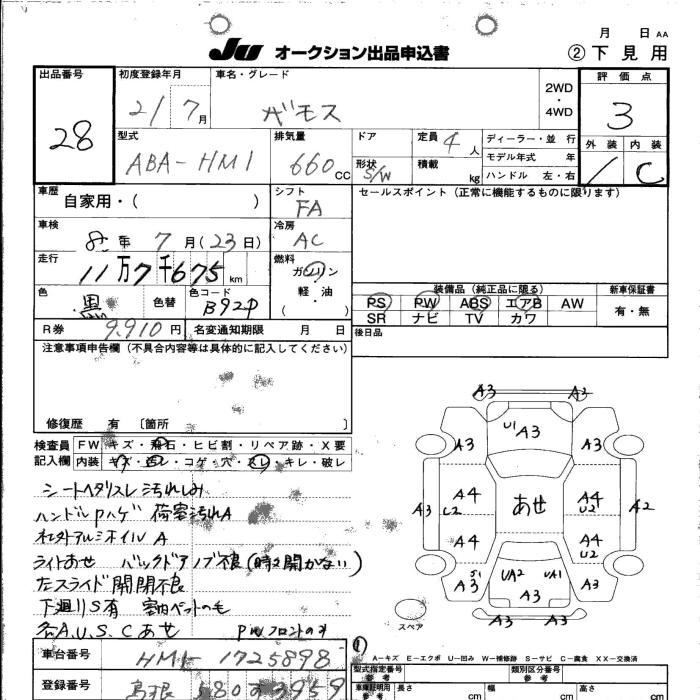 月 日 AA
JU オークション出品申込書 ② 下見用
出品番号 初度登録年月 車名・グレード 2WD ・ 4WD 評価点
28 21 7月 バモス 3
型式 排気量 ドア 定員 4人 ディーラー・並行 外装 内装
ABA-HM1 660CC 形状 S/W 積載 kg モデル年式 年 C
ハンドル 左・右
車歴 自家用・( ) シフト FA セールスポイント(正常に機能するものに限ります)
車検 年 7月(23日) 冷房 AC
走行 11万7千675km 燃料 ガソリン 軽・油 ( )
色 黒 色替 色コード B92P
装備品(純正品に限る) 新車保証書
PS PW ABS エアB AW 有・無
SR ナビ TV カワ
R券 9.910円 名変通知期限 月 日 後日品
注意事項申告欄(不具合内容等は具体的に記入してください)
修復歴 有 〔箇所 〕
検査員 FW キズ・飛石・ヒビ割・リペア跡・X要
記入欄 内装 キズ・汚レ・コゲ・穴・スレ・キレ・破レ
シートヘタリスレ汚れしみ
ハンドルPハゲ 荷室汚れA
社外アルミホイルA
ライトあせ バックドアノブ不良(時々開かない)
左スライド開閉不良
下廻りS有 室内ペットの毛
各A.U.S.Cあせ PWフロントのみ
A3 A3
U1 A3
A3 A3
A3 A4 U2 あせ A4 U2 A2
A4 A4 U2
A3 S1 UA2 UA1 A3 A3
A3 A3
スペア
A-キズ E-エクボ U-凹み W-補修跡 S-サビ C-腐食 XX-交換済
車台番号 HM1-1725898 型式指定番号 参考 類別区分番号 参考
登録番号 島根 580 3959 車庫証明用 参考 長さ cm 幅 cm 高さ cm